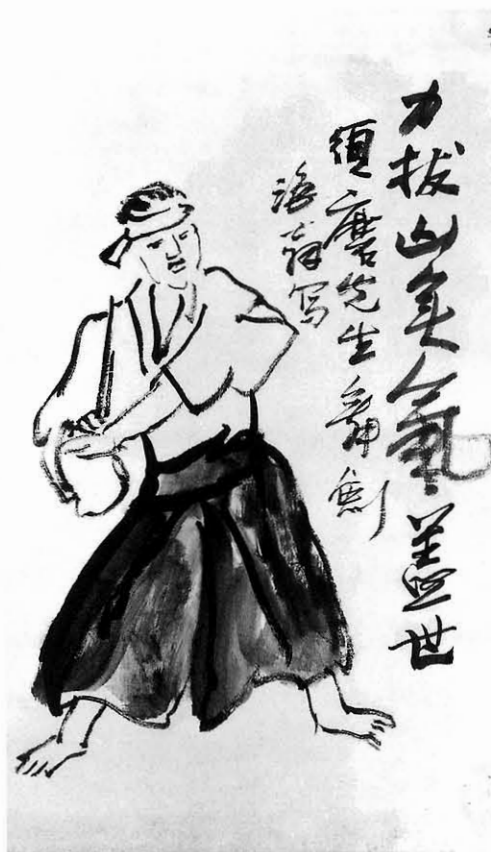 力拔山兮氣蓋世
須磨先生舞劍
海粟写